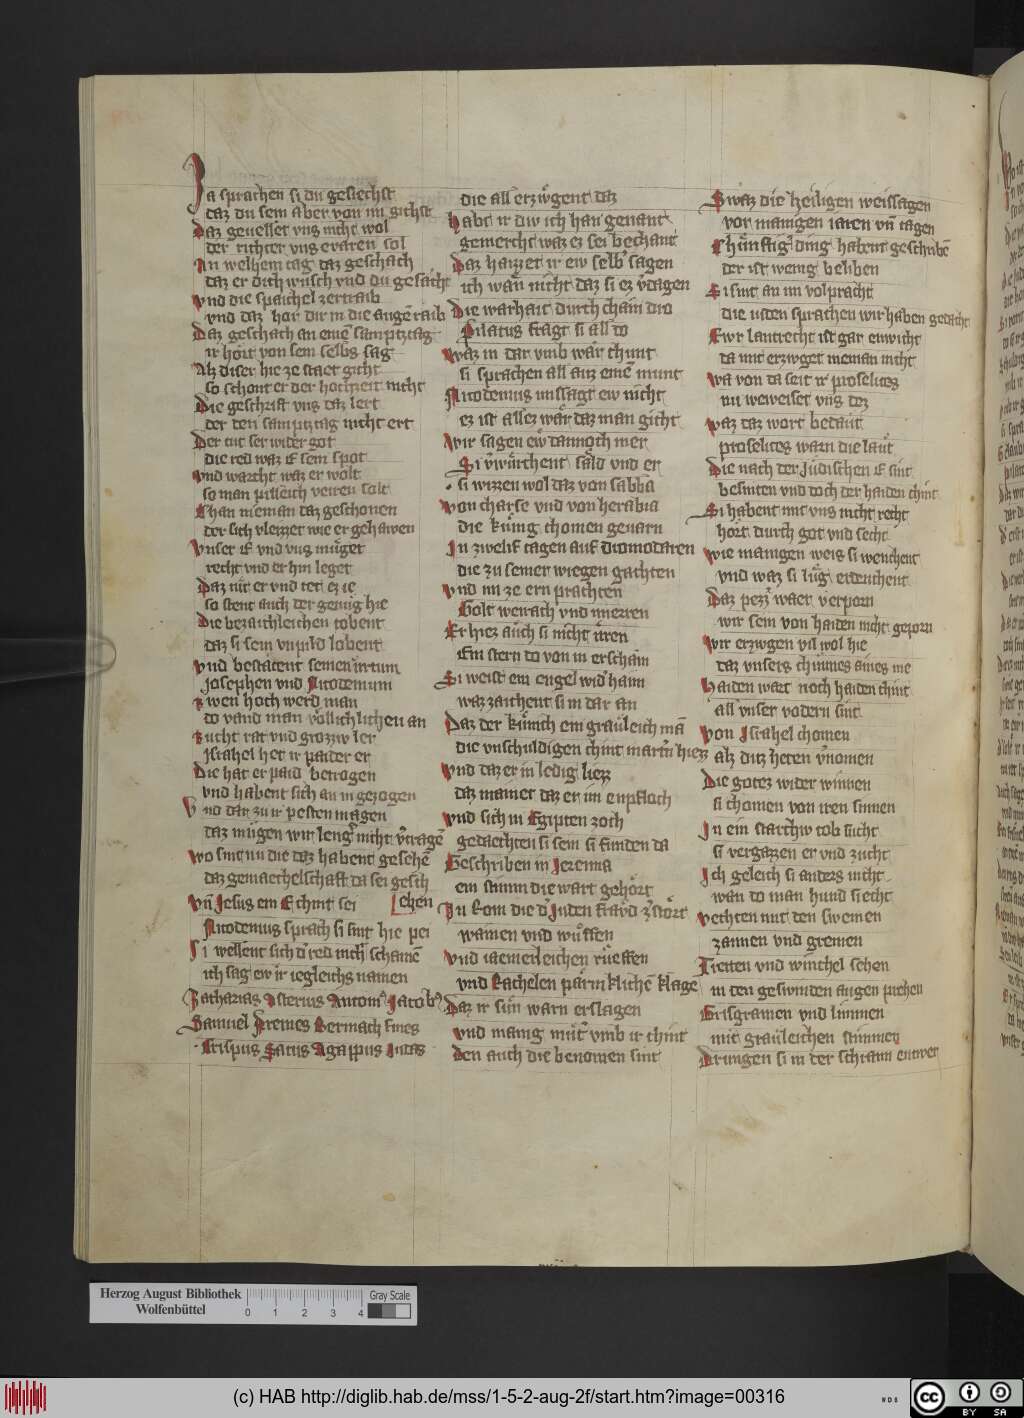 Ja sprachen si du gesiechst
daz du sem aber von im gichst
Daz geuellet vns nicht wol
der richter vns eruaren sol
An welhem tag daz geschach
daz er dich wusch vnd du gesacht
vnd die spaichel zertraib
vnd daz hor dir in die augē raib
Daz geschach an einē samptztag
ir hört von sein selbs sag
Alz diser hie ze staet gicht
so schont er der hochzeit nicht
Die geschrift vns daz lert
der den samptztag nicht ert
Der tut ser wider got
die red waz E sein spot
vnd warcht waz er wolt
so man pilleich veiren solt
Chan nieman daz geschonen
der sich vleizzet wie er gehawen
vnser E vnd vns müget
recht vnd er hin leget
Daz nit er vnd tet ez ie
so stent auch der genug hie
Die bezaichleichen tobent
daz si sein vnpild lobent
vnd bestatent seinen irtum
Josephen vnd Nicodemum
zwen hoch werd man
do vand man völlichlichen an
zucht rat vnd grozzw ler
Israhel het ir paider er
Die hat er paid betrogen
vnd habent sich an in gezogen
vnd dar zu ir pesten magen
daz mügen wir leng' nicht v'tragē
wo sint nu die daz habent gesehē
daz gemaechelschaft da sei gesch
vn Jesus ein E chint sei
Lehen
Nicodemus sprach si sint hie pei
Si wellent sich d' red nich schamē
ich sag ew ir iegleichs namen
Zacharias Asterius Antoni' Jacob'
Samuel Ysenes Germach Fines
Crispus Satus Agappus Judas
die all erzwgent daz
habt ir diw ich han genant
gemercht waz ez sei bechant
Daz haizzet ir ew selb' sagen
ich wän nicht daz si ez v'dagen
Die warhait durch chain dro
Pilatus fragt si all do
waz in dar vmb wär chunt
si sprachen all auz einē munt
Nicodemus unssagt ew nicht
ez ist allez war daz man gicht
wir sagen ew dannoch mer
Si v'würchent säld vnd er
si wizzen wol daz von sabba
von charse vnd von herabia
die künig chomen geuarn
In zwelif tagen auf dromodaren
die zu seiner wiegen gachten
vnd im ze ern prachten
Golt weirach vnd mirren
Er hiez auch si nicht irren
Ein stern do von in erschain
Si weist ein engel wid' haim
waz zaichent si in dar an
Daz der künich ein graüleich mā
die vnschuldigen chint martn hiezz
vnd daz er in ledig liezz
daz mainet daz er im enpfloch
vnd sich in Egipten zoch
gedaechten si sein si funden da
Geschriben in Jeremia
ein stimm die wart gehört
In Rom die d' Juden fräwd z'stört
wainen vnd wuffen
vnd iaemerleichen rüeffen
vnd Rachelen pärmklichē klage
Daz ir sün warn erslagen
vnd manig müt' vmb ir chint
den auch die benomen sint
Swaz die heiligen weissagen
vor manigen iaren vn tagen
Chünftig' ding habent geschribē
der ist wenig beliben
Si sint an im volpracht
die iuden sprachen wir haben gedacht
Ewr lantrecht ist gar enwicht
da mit erzwget nieman nicht
wa von da seit ir proselites
nu weweiset vns dez
waz daz wort bedaüt
proselites warn die laüt
Die nach der Jüdischen E sint
besniten vnd doch der haiden chint
Si habent mit vns nicht recht
hört durch got vnd secht
wie manigen weis si wenchent
vnd waz si lüg erdenchent
Daz pezz' waer verporn
wir sein von haiden nicht geporn
wir erzwgen vil wol hie
daz vnsers chünnes aines nie
haiden wart noch haiden chint
all vnser vodern sint
von Israhel chomen
alz ditz heten v'nomen
Die gotez wider winnen
si chomen von iren sinnen
In ein starchw tob sucht
si vergazzen er vnd zucht
Ich geleich si anders nicht
wan do man hund siecht
vechten mit den sweinen
zannen vnd greinen
Tretten vnd winchel sehen
in den geswinden augen prehen
Grisgramen vnd limmen
mit graüleichen stimmen
Drungen si in der schrann entwer
Herzog August Bibliothek
Wolfenbüttel
0 1 2 3 4
Gray Scale
(c) HAB http://diglib.hab.de/mss/1-5-2-aug-2f/start.htm?image=00316
WDB
cc BY SA